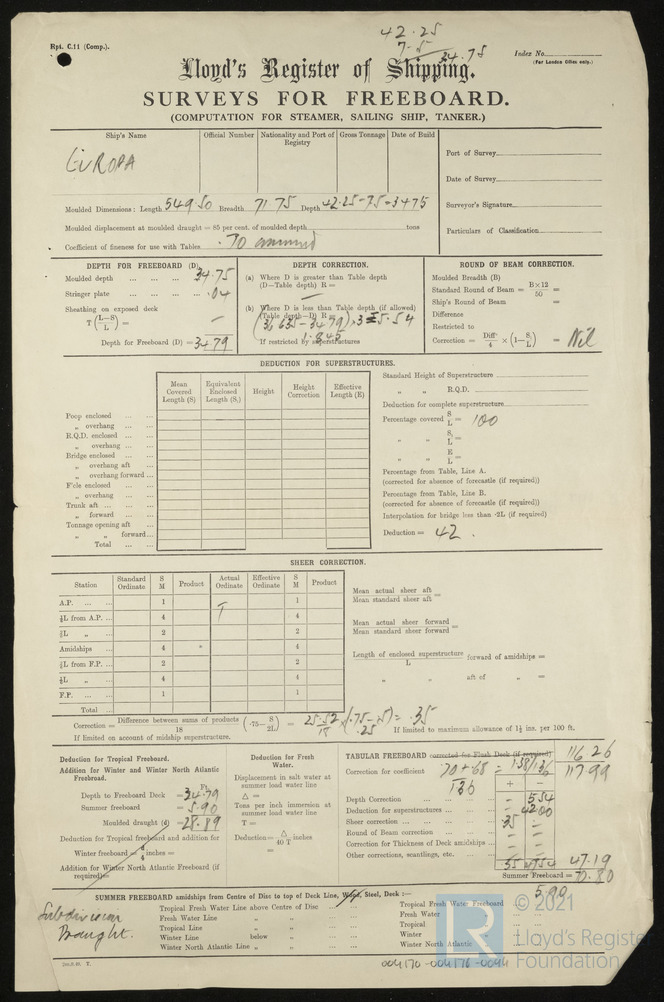 42.25
7.5
34.75
Rpt. C.11 (Comp.).
Index No.
(For London Office only.)
Lloyd's Register of Shipping.
SURVEYS FOR FREEBOARD.
(COMPUTATION FOR STEAMER, SAILING SHIP, TANKER.)
Ship's Name Official Number Nationality and Port of Registry Gross Tonnage Date of Build
EUROPA
Port of Survey
Date of Survey
Surveyor's Signature
Particulars of Classification
Moulded Dimensions: Length 549.50 Breadth 71.75 Depth 42.25-7.5=34.75
Moulded displacement at moulded draught = 85 per cent. of moulded depth tons
Coefficient of fineness for use with Tables .70 assumed
DEPTH FOR FREEBOARD (D).
Moulded depth 34.75
Stringer plate .04
Sheathing on exposed deck
T (L-S/L) = —
Depth for Freeboard (D) = 34.79
DEPTH CORRECTION.
(a) Where D is greater than Table depth
(D—Table depth) R =
—
(b) Where D is less than Table depth (if allowed)
(Table depth—D) R =
(36.635-34.79)×3=5.54
1.845
If restricted by superstructures
ROUND OF BEAM CORRECTION.
Moulded Breadth (B)
Standard Round of Beam = B×12/50 =
Ship's Round of Beam =
Difference
Restricted to
Correction = Diffce/4 × (1-S1/L) = Nil
DEDUCTION FOR SUPERSTRUCTURES.
Mean Covered Length (S) Equivalent Enclosed Length (S1) Height Height Correction Effective Length (E)
Poop enclosed
„ overhang
R.Q.D. enclosed
„ overhang
Bridge enclosed
„ overhang aft
„ overhang forward
F'cle enclosed
„ overhang
Trunk aft
„ forward
Tonnage opening aft
„ „ forward
Total
Standard Height of Superstructure
„ „ R.Q.D.
Deduction for complete superstructure
Percentage covered S/L = 100
„ „ S1/L =
„ „ E/L =
Percentage from Table, Line A.
(corrected for absence of forecastle (if required))
Percentage from Table, Line B.
(corrected for absence of forecastle (if required))
Interpolation for bridge less than ·2L (if required)
Deduction = 42.
SHEER CORRECTION.
Station Standard Ordinate S M Product Actual Ordinate Effective Ordinate S M Product
A.P. 1 1
⅙L from A.P. 4 4
⅓L „ 2 2
Amidships 4 4
⅓L from F.P. 2 2
⅙L „ 4 4
F.P. 1 1
Total
Mean actual sheer aft
Mean standard sheer aft =
Mean actual sheer forward
Mean standard sheer forward =
Length of enclosed superstructure/L forward of amidships =
„ „ aft of „ =
Correction = Difference between sums of products/18 (·75-S/2L) = 25.52/18 × (.75-.5) = .35
.25
If limited on account of midship superstructure.
If limited to maximum allowance of 1½ ins. per 100 ft.
Deduction for Tropical Freeboard.
Addition for Winter and Winter North Atlantic Freeboard.
Ft.
Depth to Freeboard Deck = 34.79
Summer freeboard = 5.90
Moulded draught (d) = 28.89
Deduction for Tropical freeboard and addition for
Winter freeboard = d/4 inches =
Addition for Winter North Atlantic Freeboard (if required) =
Deduction for Fresh Water.
Displacement in salt water at summer load water line
Δ =
Tons per inch immersion at summer load water line
T =
Deduction = Δ/40 T inches
=
TABULAR FREEBOARD corrected for Flush Deck (if required) 116.26
Correction for coefficient .70+.68/1.36 = 1.38/1.36 117.99
+ -
Depth Correction - 5.54
Deduction for superstructures - 42.00
Sheer correction .35 -
Round of Beam correction - -
Correction for Thickness of Deck amidships - -
Other corrections, scantlings, etc. - -
.35 47.54 47.19
Summer Freeboard = 70.80
5.90
SUMMER FREEBOARD amidships from Centre of Disc to top of Deck Line, Wood, Steel, Deck:—
Subdivision
Draught.
Tropical Fresh Water Line above Centre of Disc
Fresh Water Line „ „
Tropical Line „ „
Winter Line below „
Winter North Atlantic Line „ „
Tropical Fresh Water Freeboard
Fresh Water „
Tropical „
Winter „
Winter North Atlantic „
LR
© 2021
Lloyd's Register
Foundation
004170-004176-0094